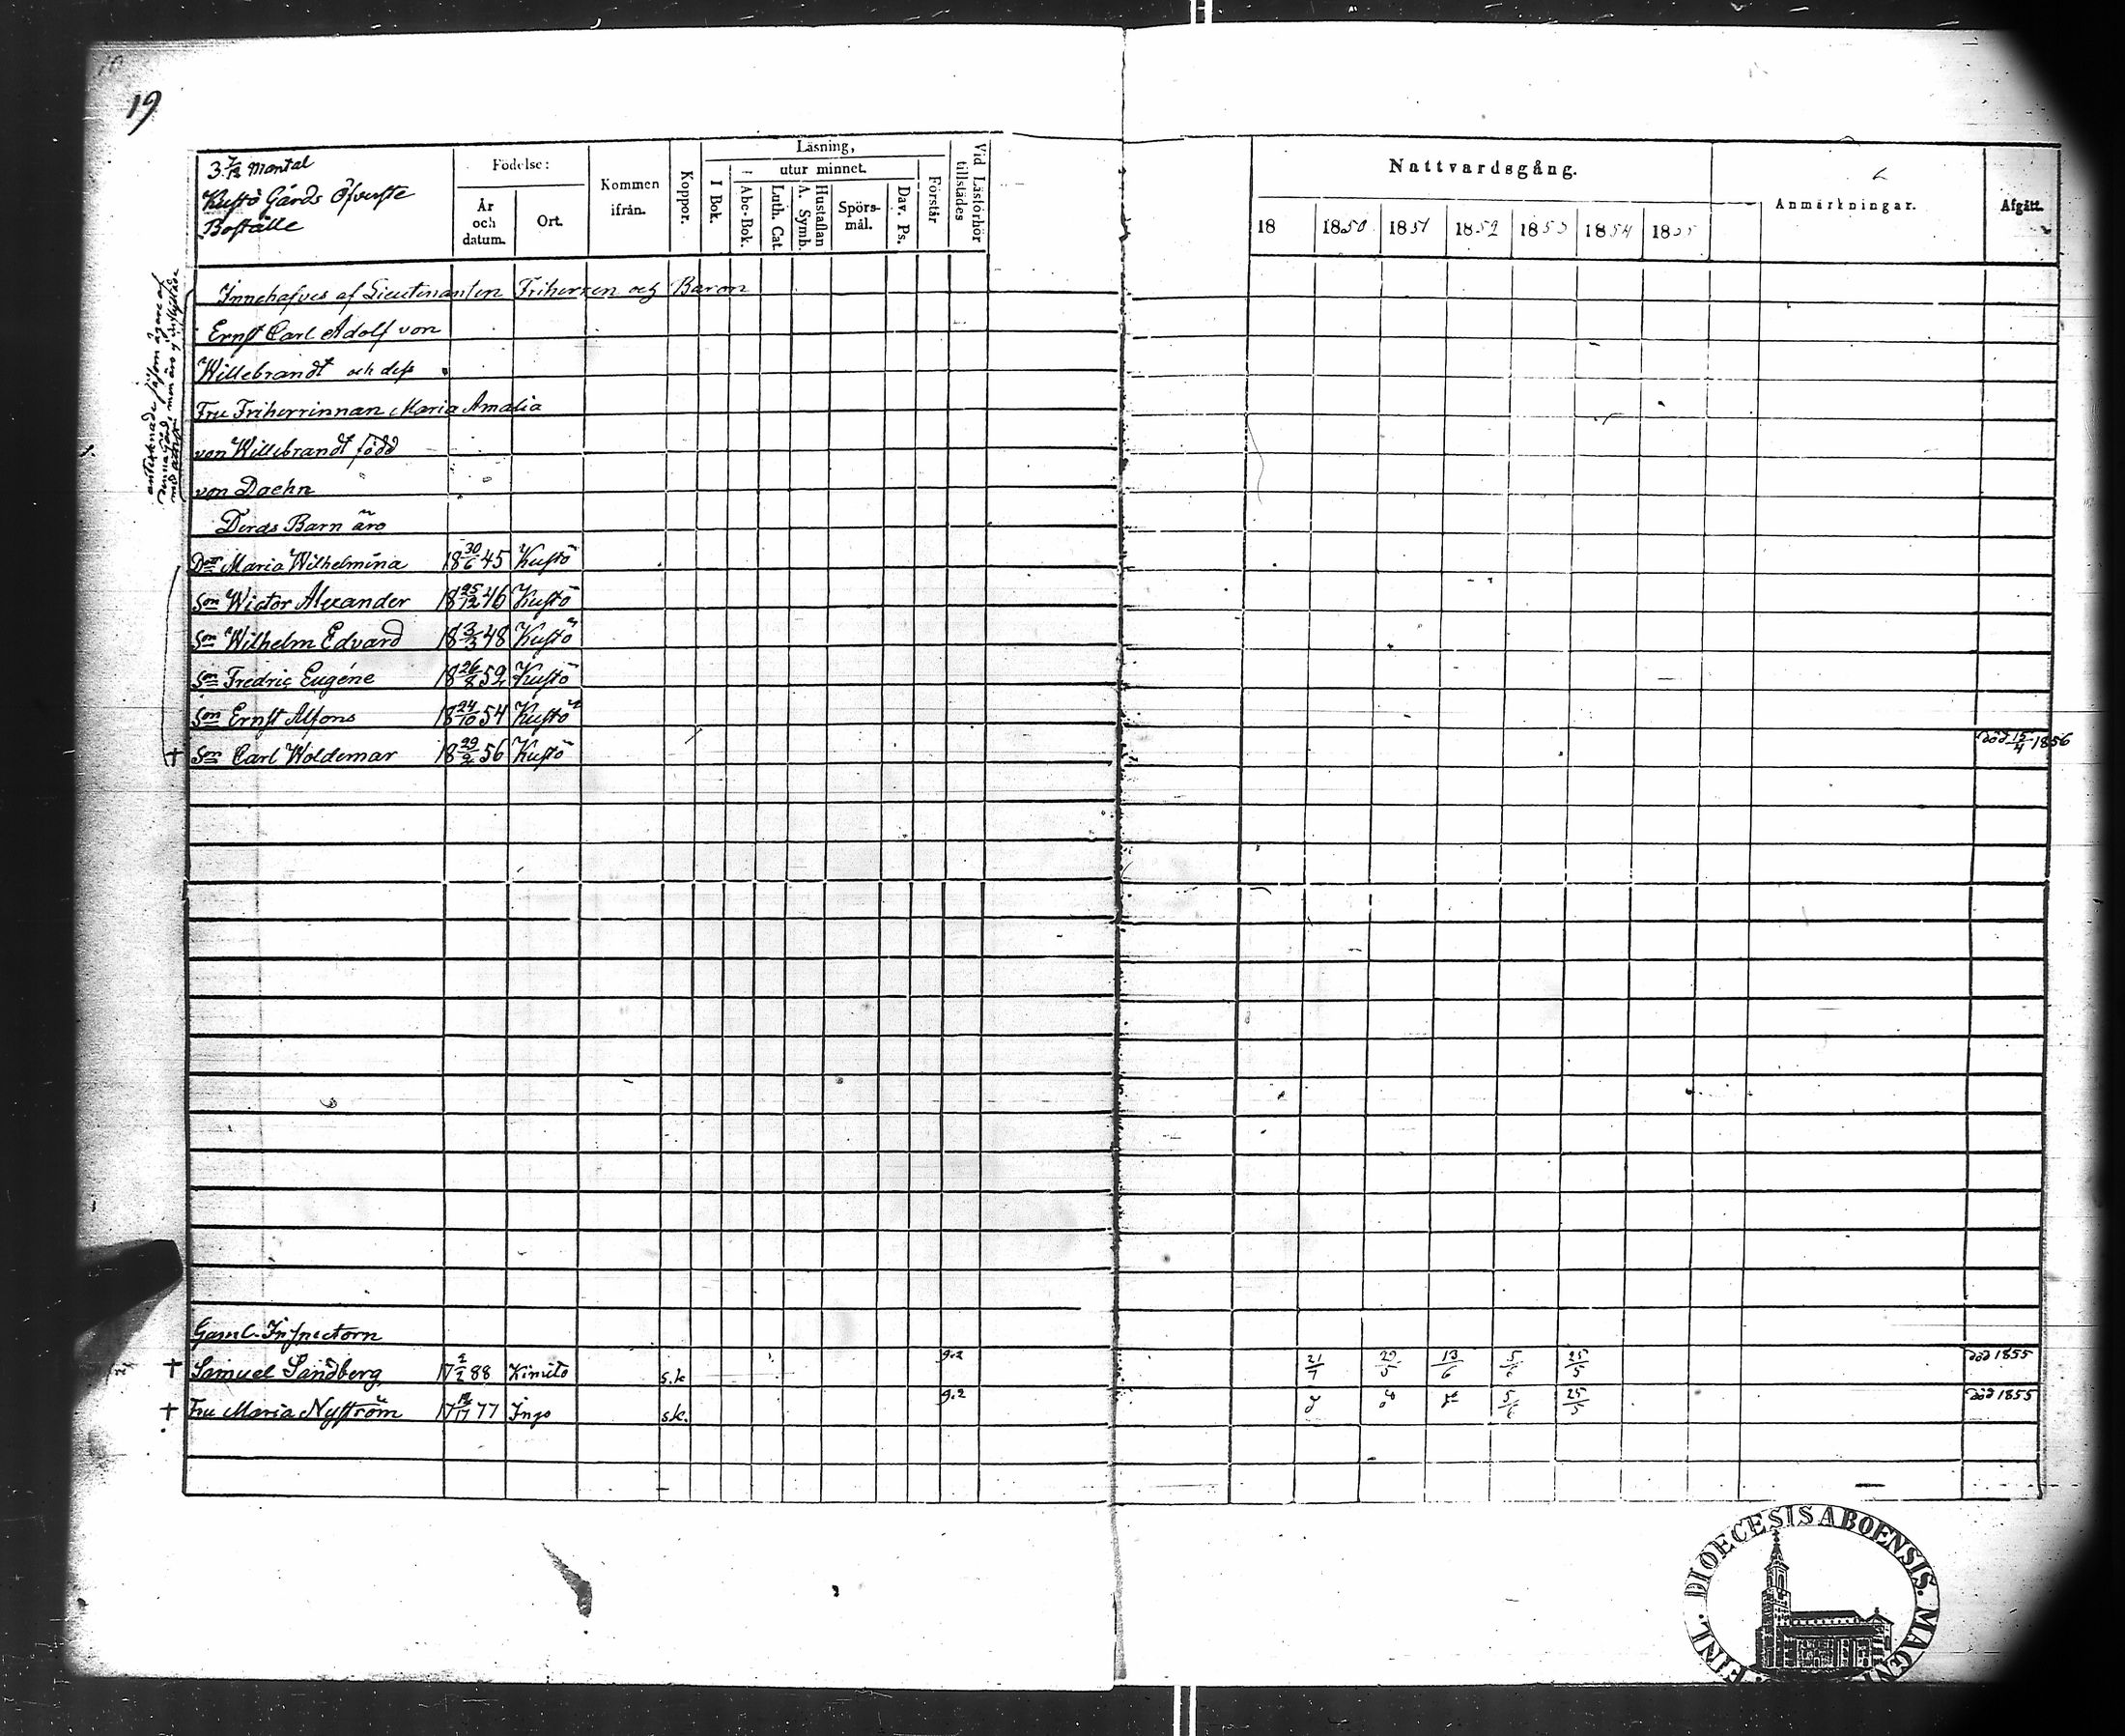 19
3 7/12 Mantal
Kustö Gårds Öfverste
Boställe
Födelse:
År
och
datum.
Ort.
Kommen
ifrån.
Koppor.
Läsning,
I Bok.
utur minnet.
Abc-Bok.
Luth. Cat.
Hustaflan
A. Symb.
Spörs-
mål.
Dav. Ps.
Förstår
Vid Läsförhör
tillstädes
Nattvardsgång.
18 1850 1851 1852 1853 1854 1855
Anmärkningar.
Afgått.
Innehafves af Lieutenanten Friherren och Baron
Ernst Carl Adolf von
Willebrandt och dess
Fru Friherrinnan Maria Amalia
von Willebrandt född
von Daehn
Deras Barn äro
Dotr Maria Wilhelmina 18 30/6 45 Kustö
Son Wictor Alexander 18 25/12 46 Kustö
Son Wilhelm Edvard 18 3/3 48 Kustö
Son Fredric Eugéne 18 26/8 52 Kustö
Son Ernst Alfons 18 24/10 54 Kustö
† Son Carl Woldemar 18 29/2 56 Kustö död 15/4 1856
Gaml. Inspectorn
† Samuel Sandberg 17 2/2 88 Kimito s.k 9.2 21/7 29/5 13/6 5/6 25/5 död 1855
† Fru Maria Nyström 17 77 Ingo s.k. 9.2 5/6 25/5 död 1855
DIOECESIS ABOENSIS. MAGNI FINL.